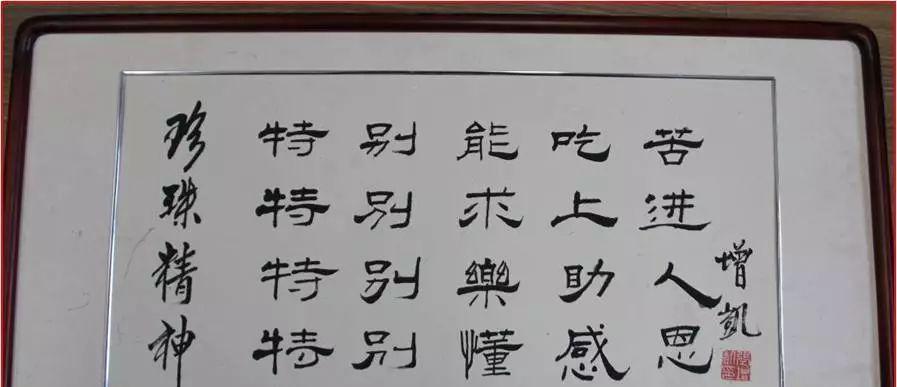 珍珠精神
特别能吃苦
特别求上进
特别樂助人
特别懂感恩
增凱